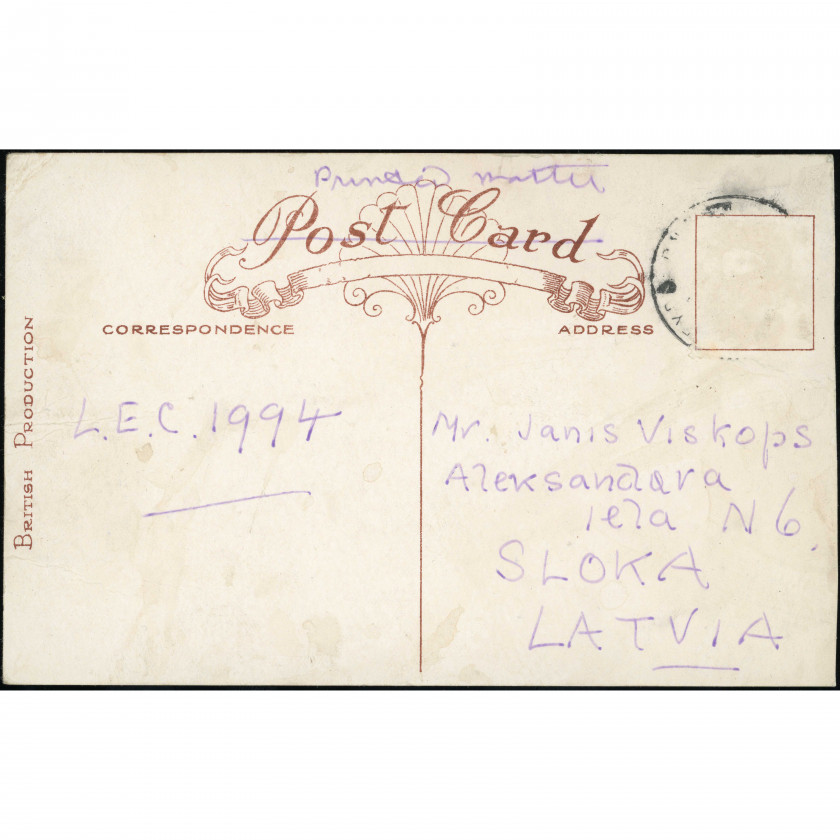 Printed matter
Post Card
CORRESPONDENCE
ADDRESS
BRITISH PRODUCTION
L.E.C. 1994
Mr. Janis Viskops
Aleksandara
iela N 6.
SLOKA
LATVIA